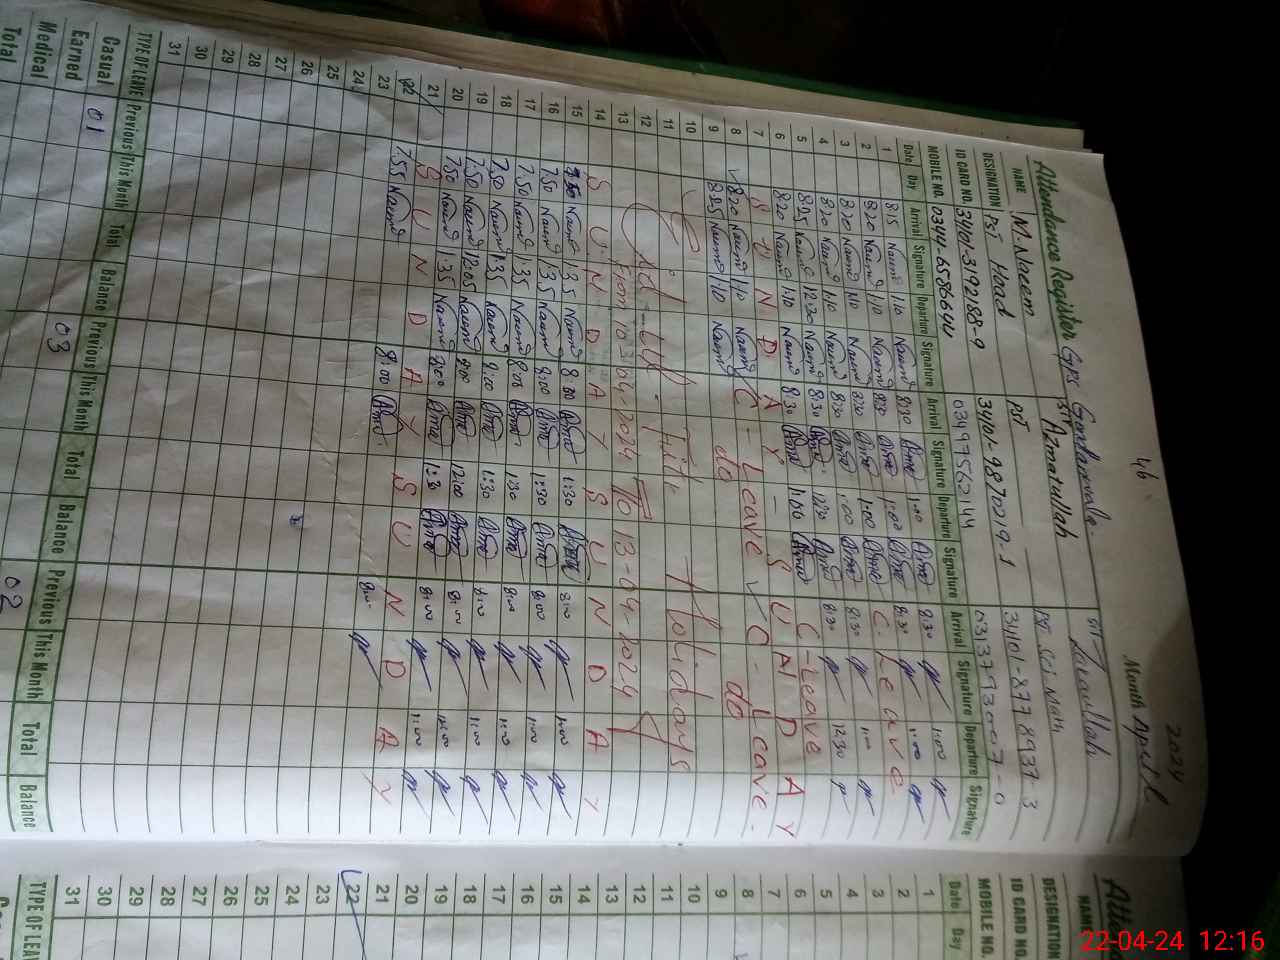 46
2024
Attendance Register Gps
Month April
NAME M. Naeem SIT Azmatullah SIT
DESIGNATION PST Head PST
ID CARD NO. 34101-3192188-9 34101-9870219-1 34101-8778937-3
MOBILE NO. 0344-6586644 03497562144
Date Day Arrival Signature Departure Signature Arrival Signature Departure Signature Arrival Signature Departure Signature
1 8:15 Naeem 1:10 Naeem 8:30 1:00 8:30 1:00
2 8:20 Naeem 1:10 Naeem 8:30 1:00 8:30 1:00
3 8:20 Naeem 1:10 Naeem 8:30 1:00 C. Leave
4 8:20 Naeem 1:10 Naeem 8:30 1:00 8:30 1:00
5 8:25 Naeem 12:30 Naeem 8:30 12:30 8:30 12:30
6 8:20 Naeem 1:10 Naeem 8:30 1:00 C-Leave
7 S U N D A Y - S U N D A Y
8 8:20 Naeem 1:10 Naeem C-Leave C-Leave.
9 8:25 Naeem 1:10 Naeem do do
10
11 Eid-Ul-Fitr Holidays
12
13 From 10-04-2024 To 13-04-2024
14 S U N D A Y S U N D A Y
15 7:50 Naeem 1:35 Naeem 8:00 1:30 8:00 1:00
16 7:50 Naeem 1:35 Naeem 8:00 1:30 8:00 1:00
17 7:50 Naeem 1:35 Naeem 8:00 1:30 8:00 1:00
18 7:50 Naeem 1:35 Naeem 8:00 1:30 8:00 1:00
19 7:50 Naeem 12:05 Naeem 8:00 12:00 8:00
20 7:50 Naeem 1:35 Naeem 8:00 1:30 8:00 1:00
21 S U N D A Y S U N D A Y
22 7:55 Naeem 8:00 8:00
23
24
25
26
27
28
29
30
31
TYPE OF LEAVE Previous This Month Total Balance Previous This Month Total Balance Previous This Month Total Balance
Casual 01 03 02
Earned
Medical
Total
NAME
DESIGNATION
ID CARD NO.
MOBILE NO.
Date Day
1
2
3
4
5
6
7
8
9
10
11
12
13
14
15
16
17
18
19
20
21
22
23
24
25
26
27
28
29
30
31
TYPE OF LEAV
22-04-24 12:16